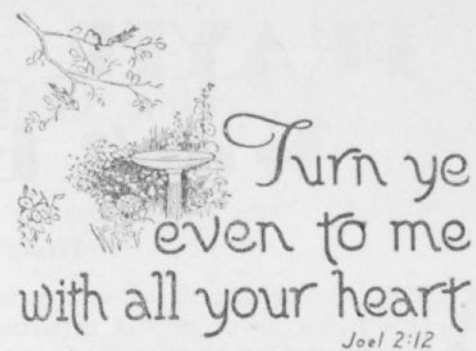 Turn ye
even to me
with all your heart
Joel 2:12